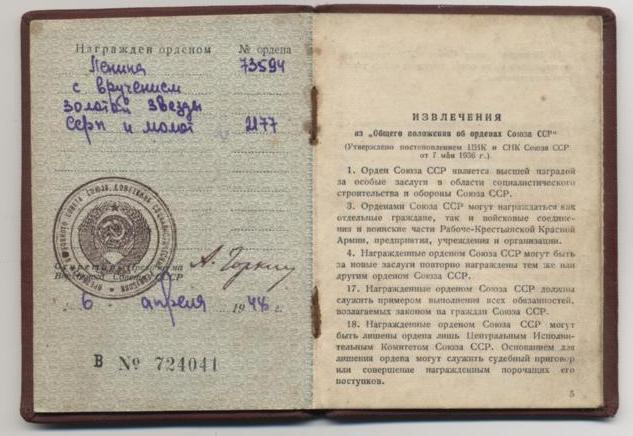 Награжден орденом № ордена
Ленина 73594
с вручением
золотой звезды
Серп и молот 2177
А. Горкин
Секретарь Президиума
Верховного Совета СССР
6 апреля 1948 г.
В № 724041
ИЗВЛЕЧЕНИЯ
из „Общего положения об орденах Союза ССР“
(Утверждено постановлением ЦИК и СНК Союза ССР
от 7 мая 1936 г.).
1. Орден Союза ССР является высшей наградой
за особые заслуги в области социалистического
строительства и обороны Союза ССР.
3. Орденами Союза ССР могут награждаться как
отдельные граждане, так и войсковые соедине-
ния и воинские части Рабоче-Крестьянской Красной
Армии, предприятия, учреждения и организации.
4. Награжденные орденом Союза ССР могут быть
за новые заслуги повторно награждены тем же или
другим орденом Союза ССР.
17. Награжденные орденом Союза ССР должны
служить примером выполнения всех обязанностей,
возлагаемых законом на граждан Союза ССР.
18. Награжденные орденом Союза ССР могут
быть лишены ордена лишь Центральным Исполни-
тельным Комитетом Союза ССР. Основанием для
лишения ордена могут служить судебный приговор
или совершение награжденным порочащих его
поступков.
5